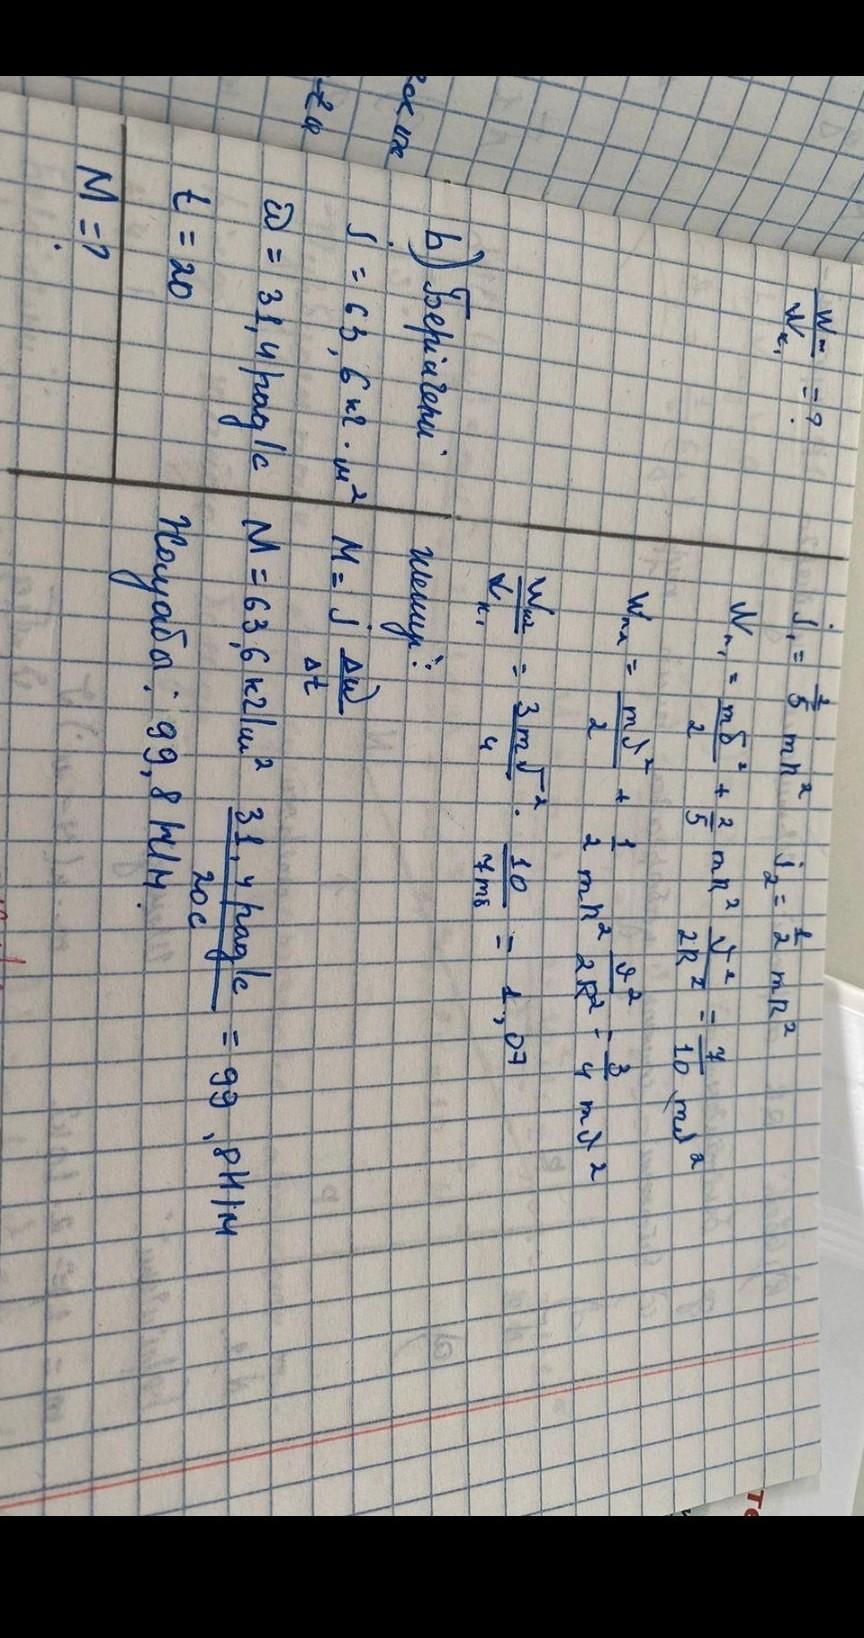 W_к₂/W_к₁ = ?
j₁ = 2/5 mR² j₂ = 1/2 mR²
W_к₁ = mϑ²/2 + 2/5 mR² ϑ²/2R² = 7/10 mϑ²
W_к₂ = mϑ²/2 + 1/2 mR² ϑ²/2R² = 3/4 mϑ²
W_к₂/W_к₁ = 3mϑ²/4 · 10/7mϑ = 1,07
b) Берілгені
j = 63,6 кг · м²
ω = 31,4 рад/с
t = 20
M = ?
Шешуі:
M = j Δω/Δt
M = 63,6 кг/м² 31,4 рад/с / 20с = 99,8 Н/м
Жауабы: 99,8 Н/м.